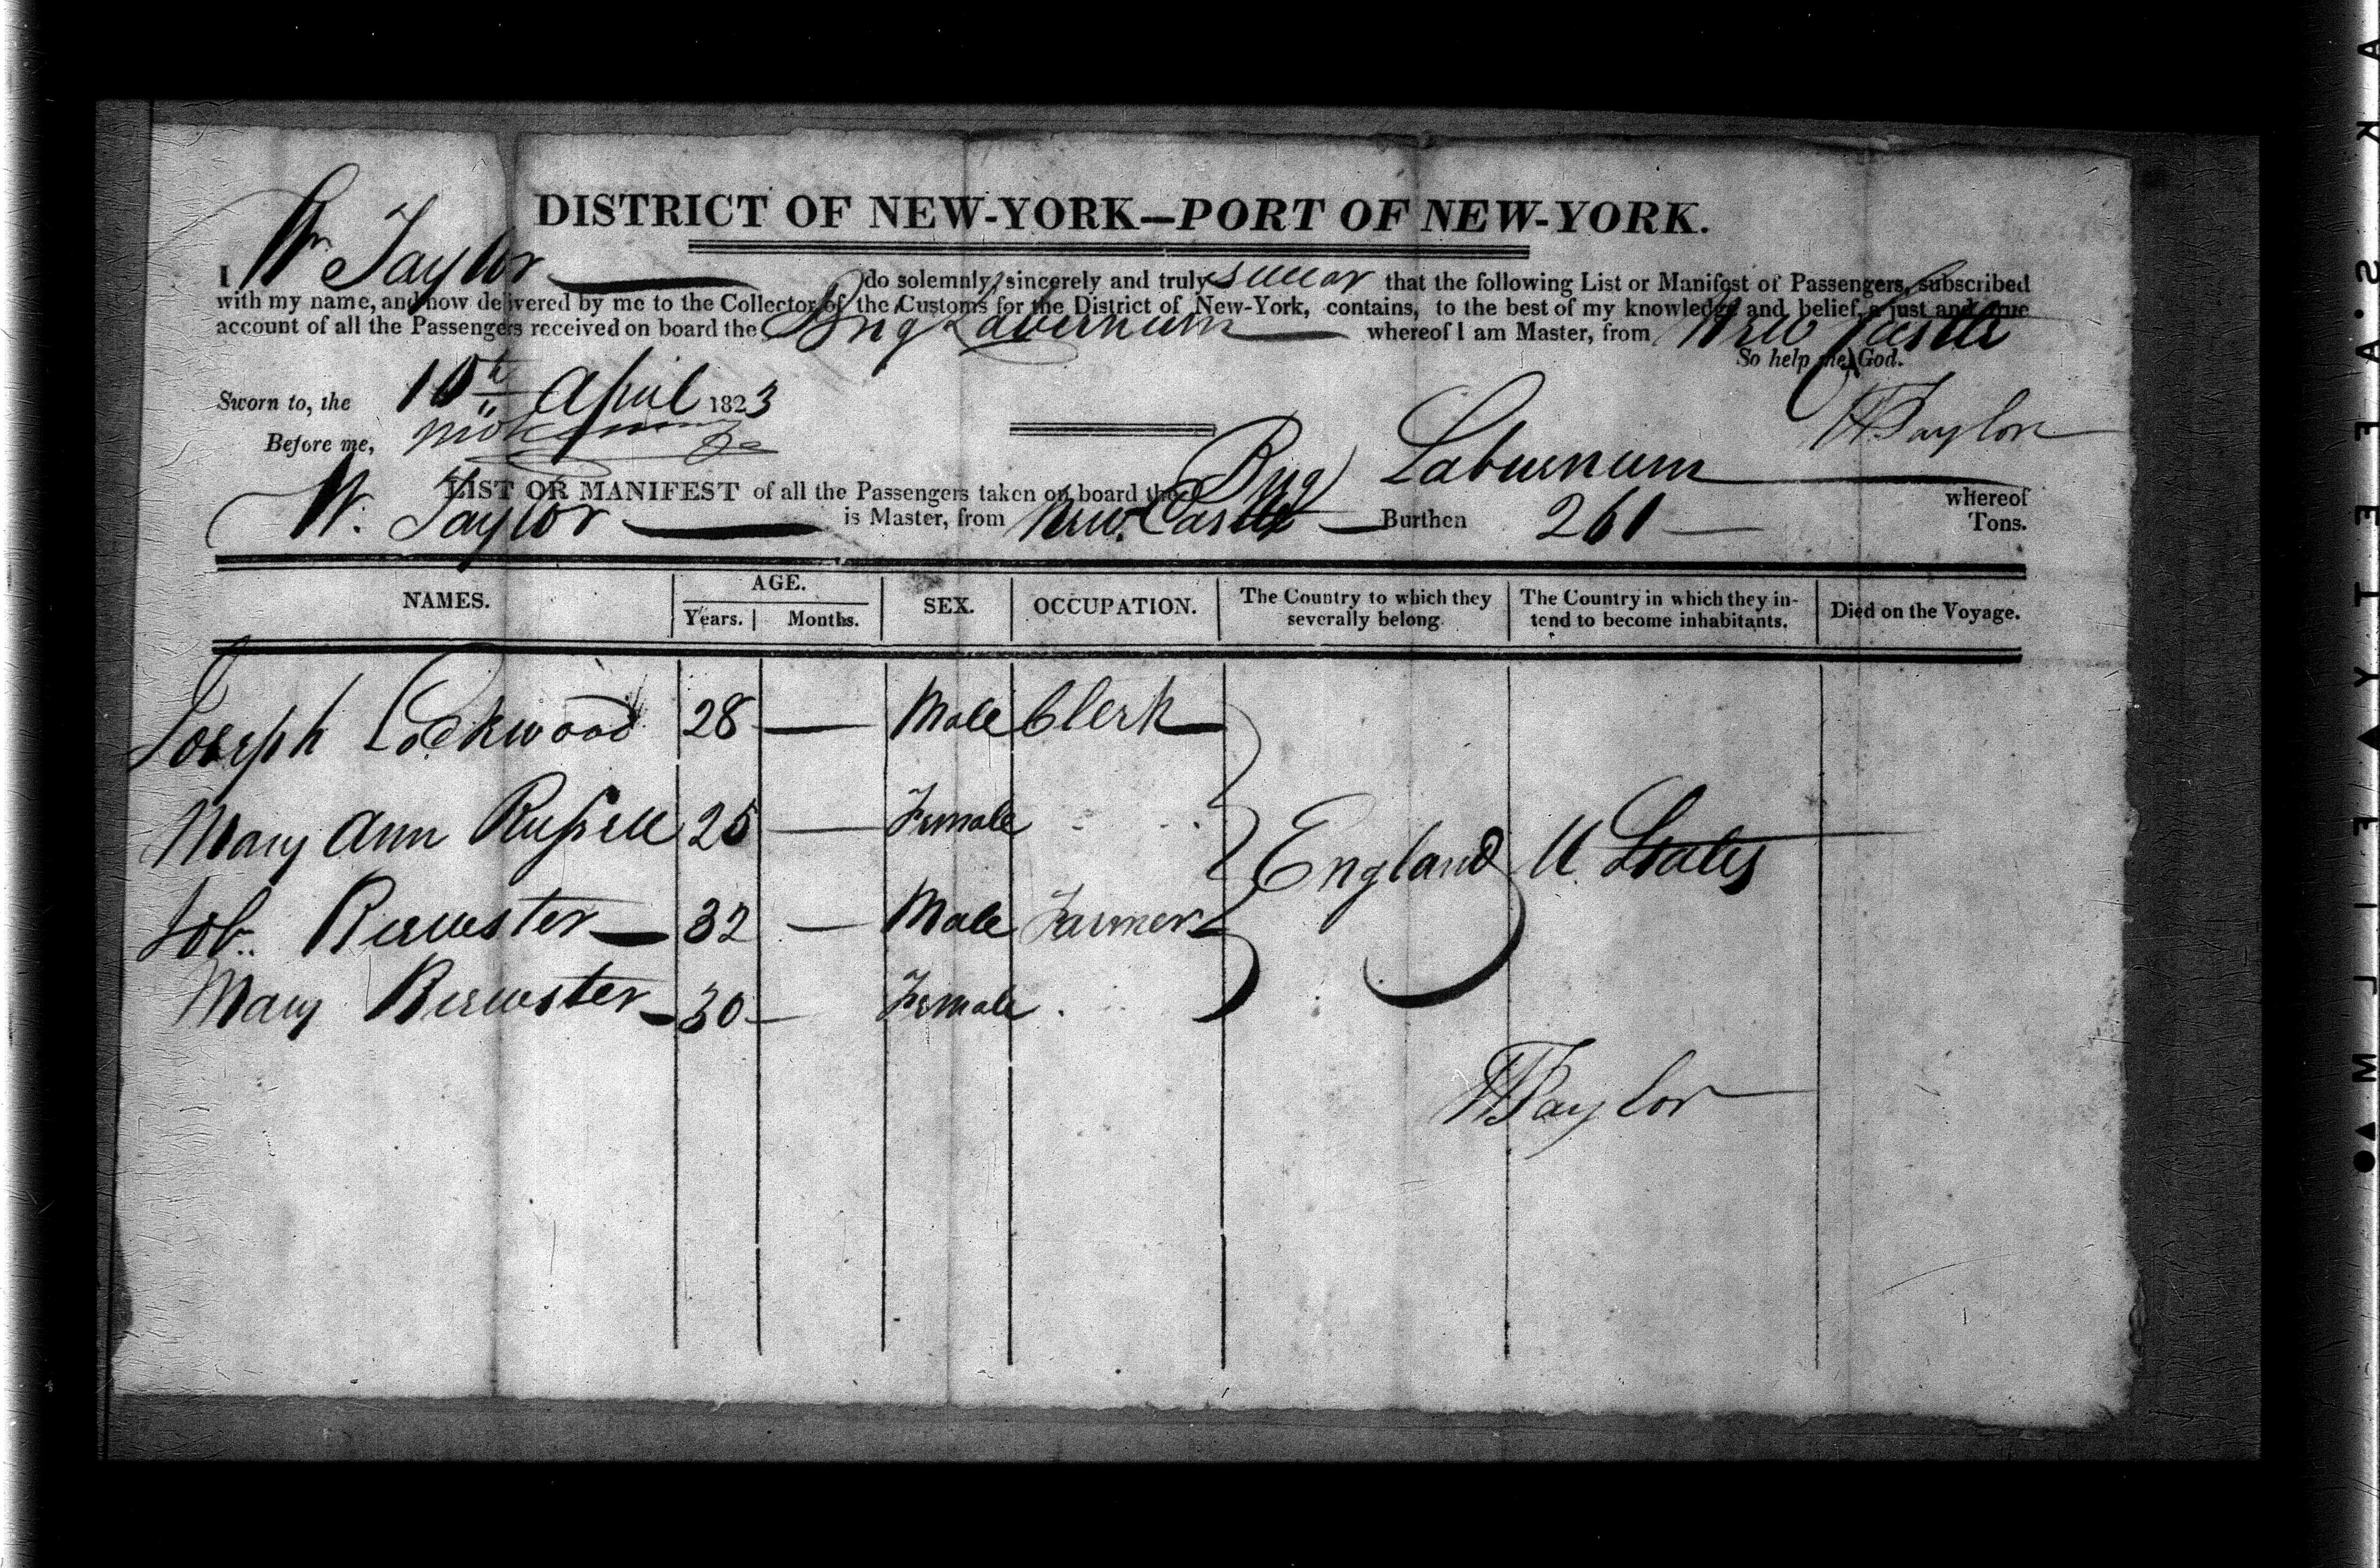 DISTRICT OF NEW-YORK—PORT OF NEW-YORK.
I Wm Taylor do solemnly, sincerely and truly swear that the following List or Manifest of Passengers, subscribed
with my name, and now delivered by me to the Collector of the Customs for the District of New-York, contains, to the best of my knowledge and belief, a just and true
account of all the Passengers received on board the Brig Labernum whereof I am Master, from New Castle
So help me God.
Sworn to, the 10th April 1823
W Taylor
Before me,
LIST OR MANIFEST of all the Passengers taken on board the Brig Laburnum whereof
W. Taylor is Master, from New Castle Burthen 261 Tons.
NAMES. AGE. SEX. OCCUPATION. The Country to which they severally belong. The Country in which they intend to become inhabitants. Died on the Voyage.
Years. Months.
Joseph Lockwood 28 — Male Clerk
Mary Ann Russell 25 — Female
England U. States
Job. Brewster 32 — Male Farmer
Mary Brewster 30 — Female
W Taylor